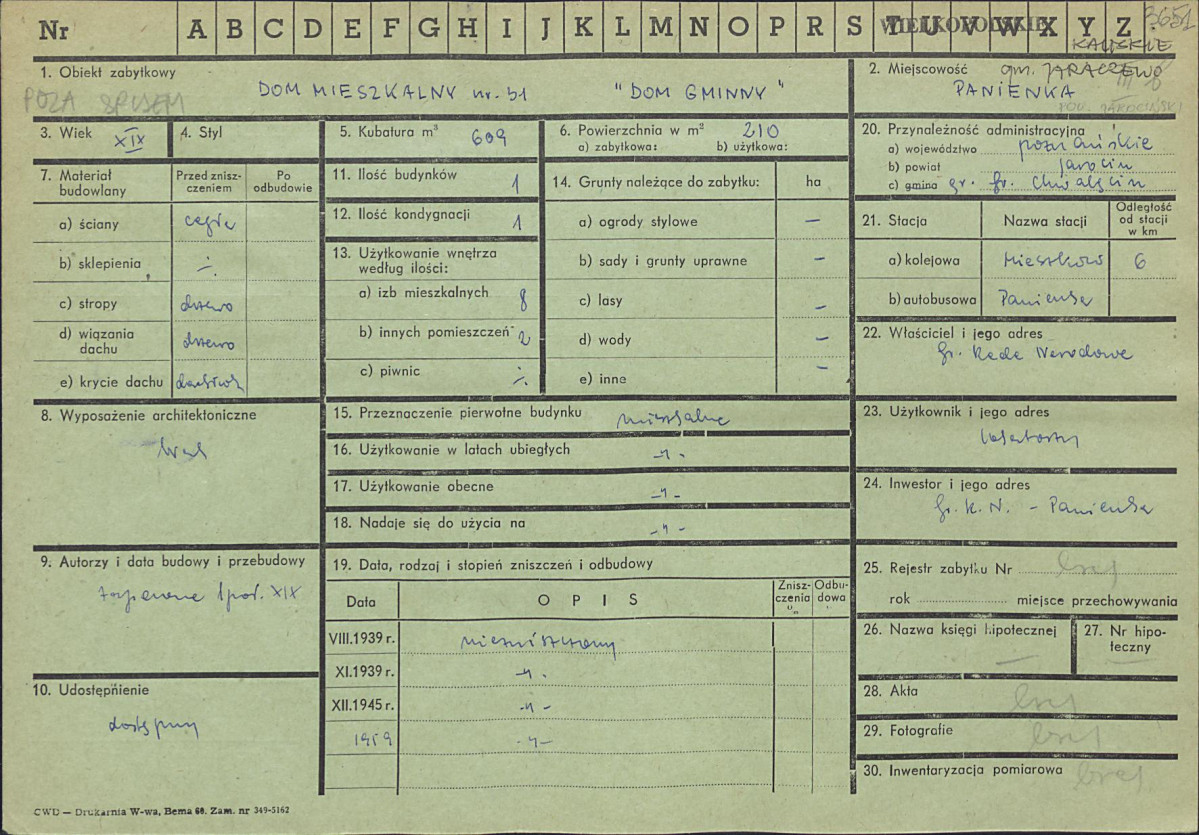 Nr A B C D E F G H I J K L M N O P R S T U V W X Y Z 3651
WIELKOPOLSKIE
KALISKIE
1. Obiekt zabytkowy
POZA SPISEM
DOM MIESZKALNY nr. 51 "DOM GMINNY"
2. Miejscowość gm. JARACZEWO
PANIENKA
POW. JAROCIŃSKI
3. Wiek XIX
4. Styl
5. Kubatura m³ 609
6. Powierzchnia w m² 210
a) zabytkowa: b) użytkowa:
7. Materiał budowlany
Przed zniszczeniem
Po odbudowie
a) ściany cegła
b) sklepienia ./.
c) stropy drzewo
d) wiązania dachu drzewo
e) krycie dachu dachówka
8. Wyposażenie architektoniczne
brak
9. Autorzy i data budowy i przebudowy
zapewne I poł. XIX
10. Udostępnienie
dostępny
11. Ilość budynków 1
12. Ilość kondygnacji 1
13. Użytkowanie wnętrza według ilości:
a) izb mieszkalnych 8
b) innych pomieszczeń 2
c) piwnic ./.
14. Grunty należące do zabytku: ha
a) ogrody stylowe —
b) sady i grunty uprawne —
c) lasy —
d) wody —
e) inne —
15. Przeznaczenie pierwotne budynku mieszkalne
16. Użytkowanie w latach ubiegłych -"-
17. Użytkowanie obecne -"-
18. Nadaje się do użycia na -"-
19. Data, rodzaj i stopień zniszczeń i odbudowy
Data
O P I S
Zniszczenia %
Odbudowa
VIII.1939 r. niezniszczony
XI.1939 r. -"-
XII.1945 r. -"-
1959 -"-
20. Przynależność administracyjna
a) województwo poznańskie
b) powiat Jarocin
c) gmina gr. Chwalęcin
21. Stacja
Nazwa stacji
Odległość od stacji w km
a) kolejowa Mieszków 6
b) autobusowa Panienka
22. Właściciel i jego adres
Gr. Rada Narodowa
23. Użytkownik i jego adres
lokatorzy
24. Inwestor i jego adres
Gr. R. N. - Panienka
25. Rejestr zabytku Nr brak
rok miejsce przechowywania
26. Nazwa księgi hipotecznej —
27. Nr hipoteczny
28. Akta brak
29. Fotografie brak
30. Inwentaryzacja pomiarowa brak
CWD — Drukarnia W-wa, Bema 60. Zam. nr 349-5162